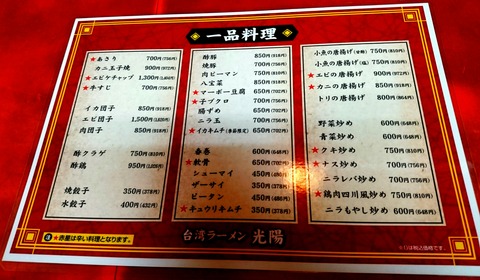 一品料理
★あさり 700円(756円)
カニ玉子焼 900円(972円)
★エビケチャップ 1,300円(1,404円)
★牛すじ 700円(756円)
イカ団子 850円(918円)
エビ団子 1,500円(1,620円)
肉団子 850円(918円)
酢クラゲ 750円(810円)
酢鶏 950円(1,026円)
焼餃子 350円(378円)
水餃子 400円(432円)
酢豚 850円(918円)
焼豚 700円(756円)
肉ピーマン 750円(810円)
八宝菜 850円(918円)
★マーボー豆腐 650円(702円)
★子ブクロ 700円(756円)
腸ずめ 650円(702円)
ニラ玉 700円(756円)
★イカキムチ 650円(702円)
春巻 600円(648円)
★軟骨 650円(702円)
シューマイ 450円(486円)
ザーサイ 350円(378円)
ピータン 450円(486円)
★キュウリキムチ 350円(378円)
小魚の唐揚げ(甘酢) 750円(810円)
小魚の唐揚げ(塩) 750円(810円)
★エビの唐揚げ 900円(972円)
★カニの唐揚げ 850円(918円)
トリの唐揚げ 800円(864円)
野菜炒め 600円(648円)
青菜炒め 600円(648円)
★クキ炒め 750円(810円)
★ナス炒め 700円(756円)
ニラレバ炒め 700円(756円)
★鶏肉四川風炒め 750円(810円)
ニラもやし炒め 600円(648円)
★赤星は辛い料理となります。
台湾ラーメン 光陽
※( )は税込価格です。